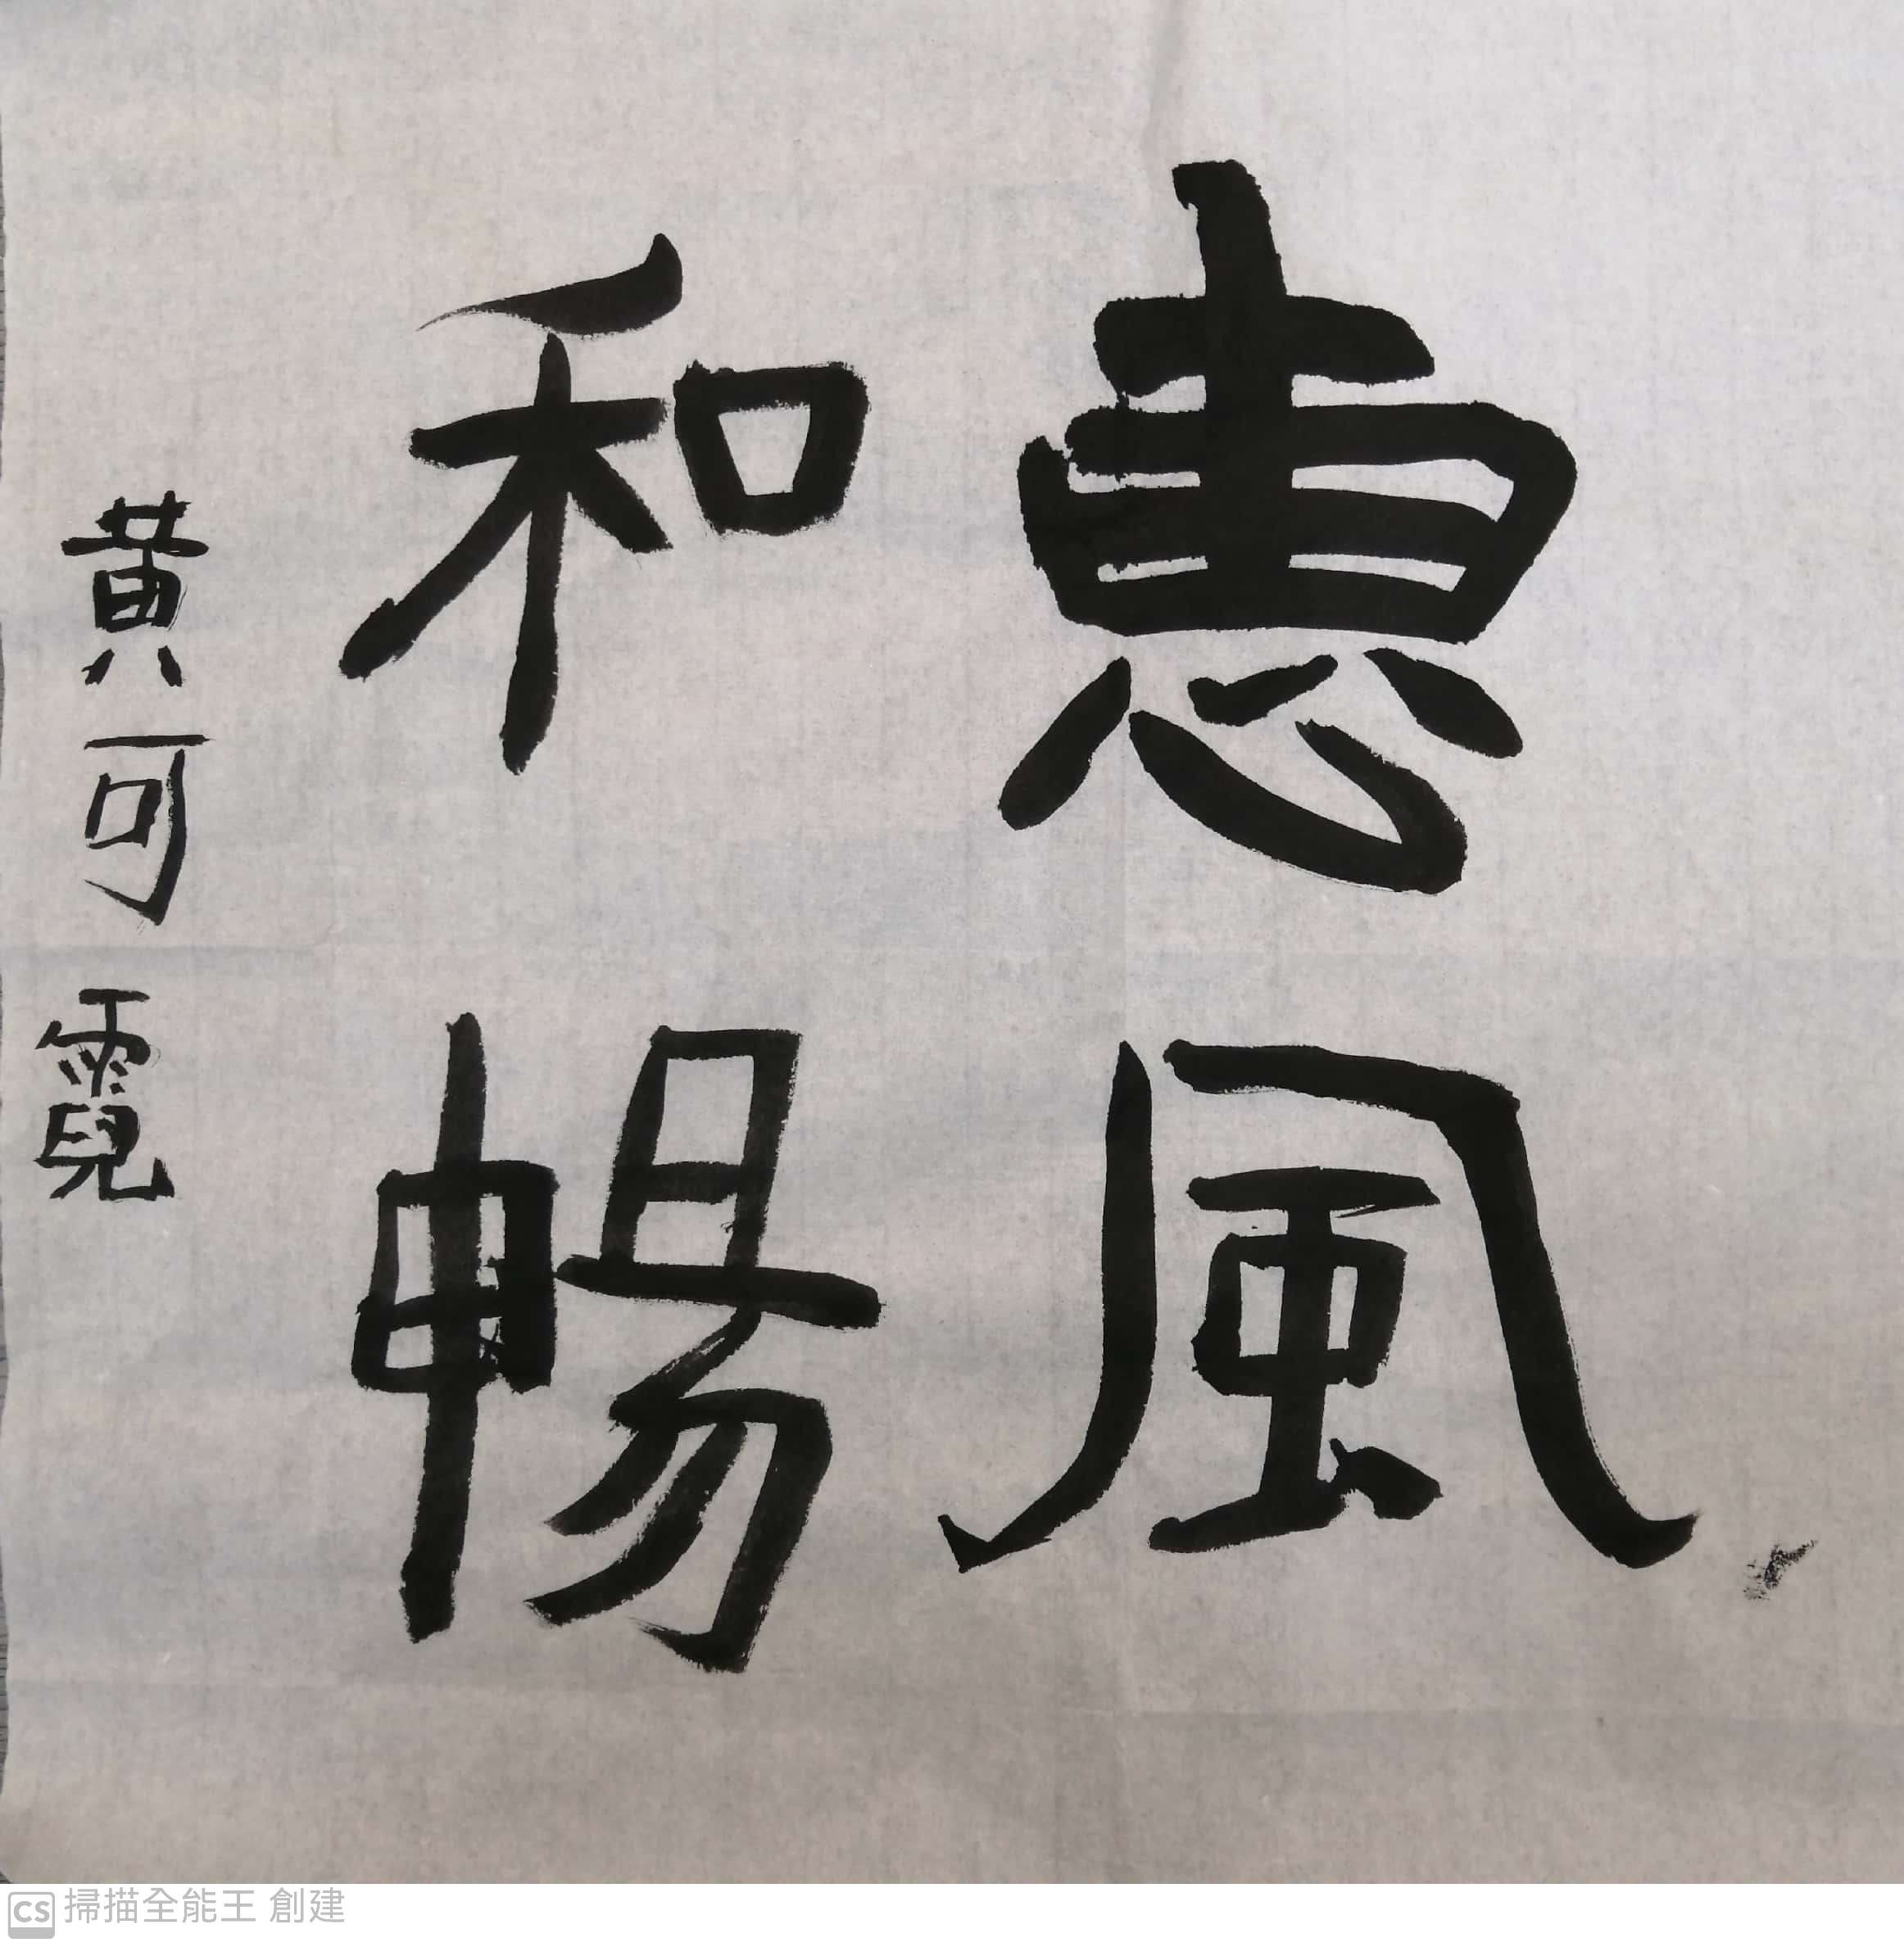 惠風
和暢
黃可霓
CS 掃描全能王 創建